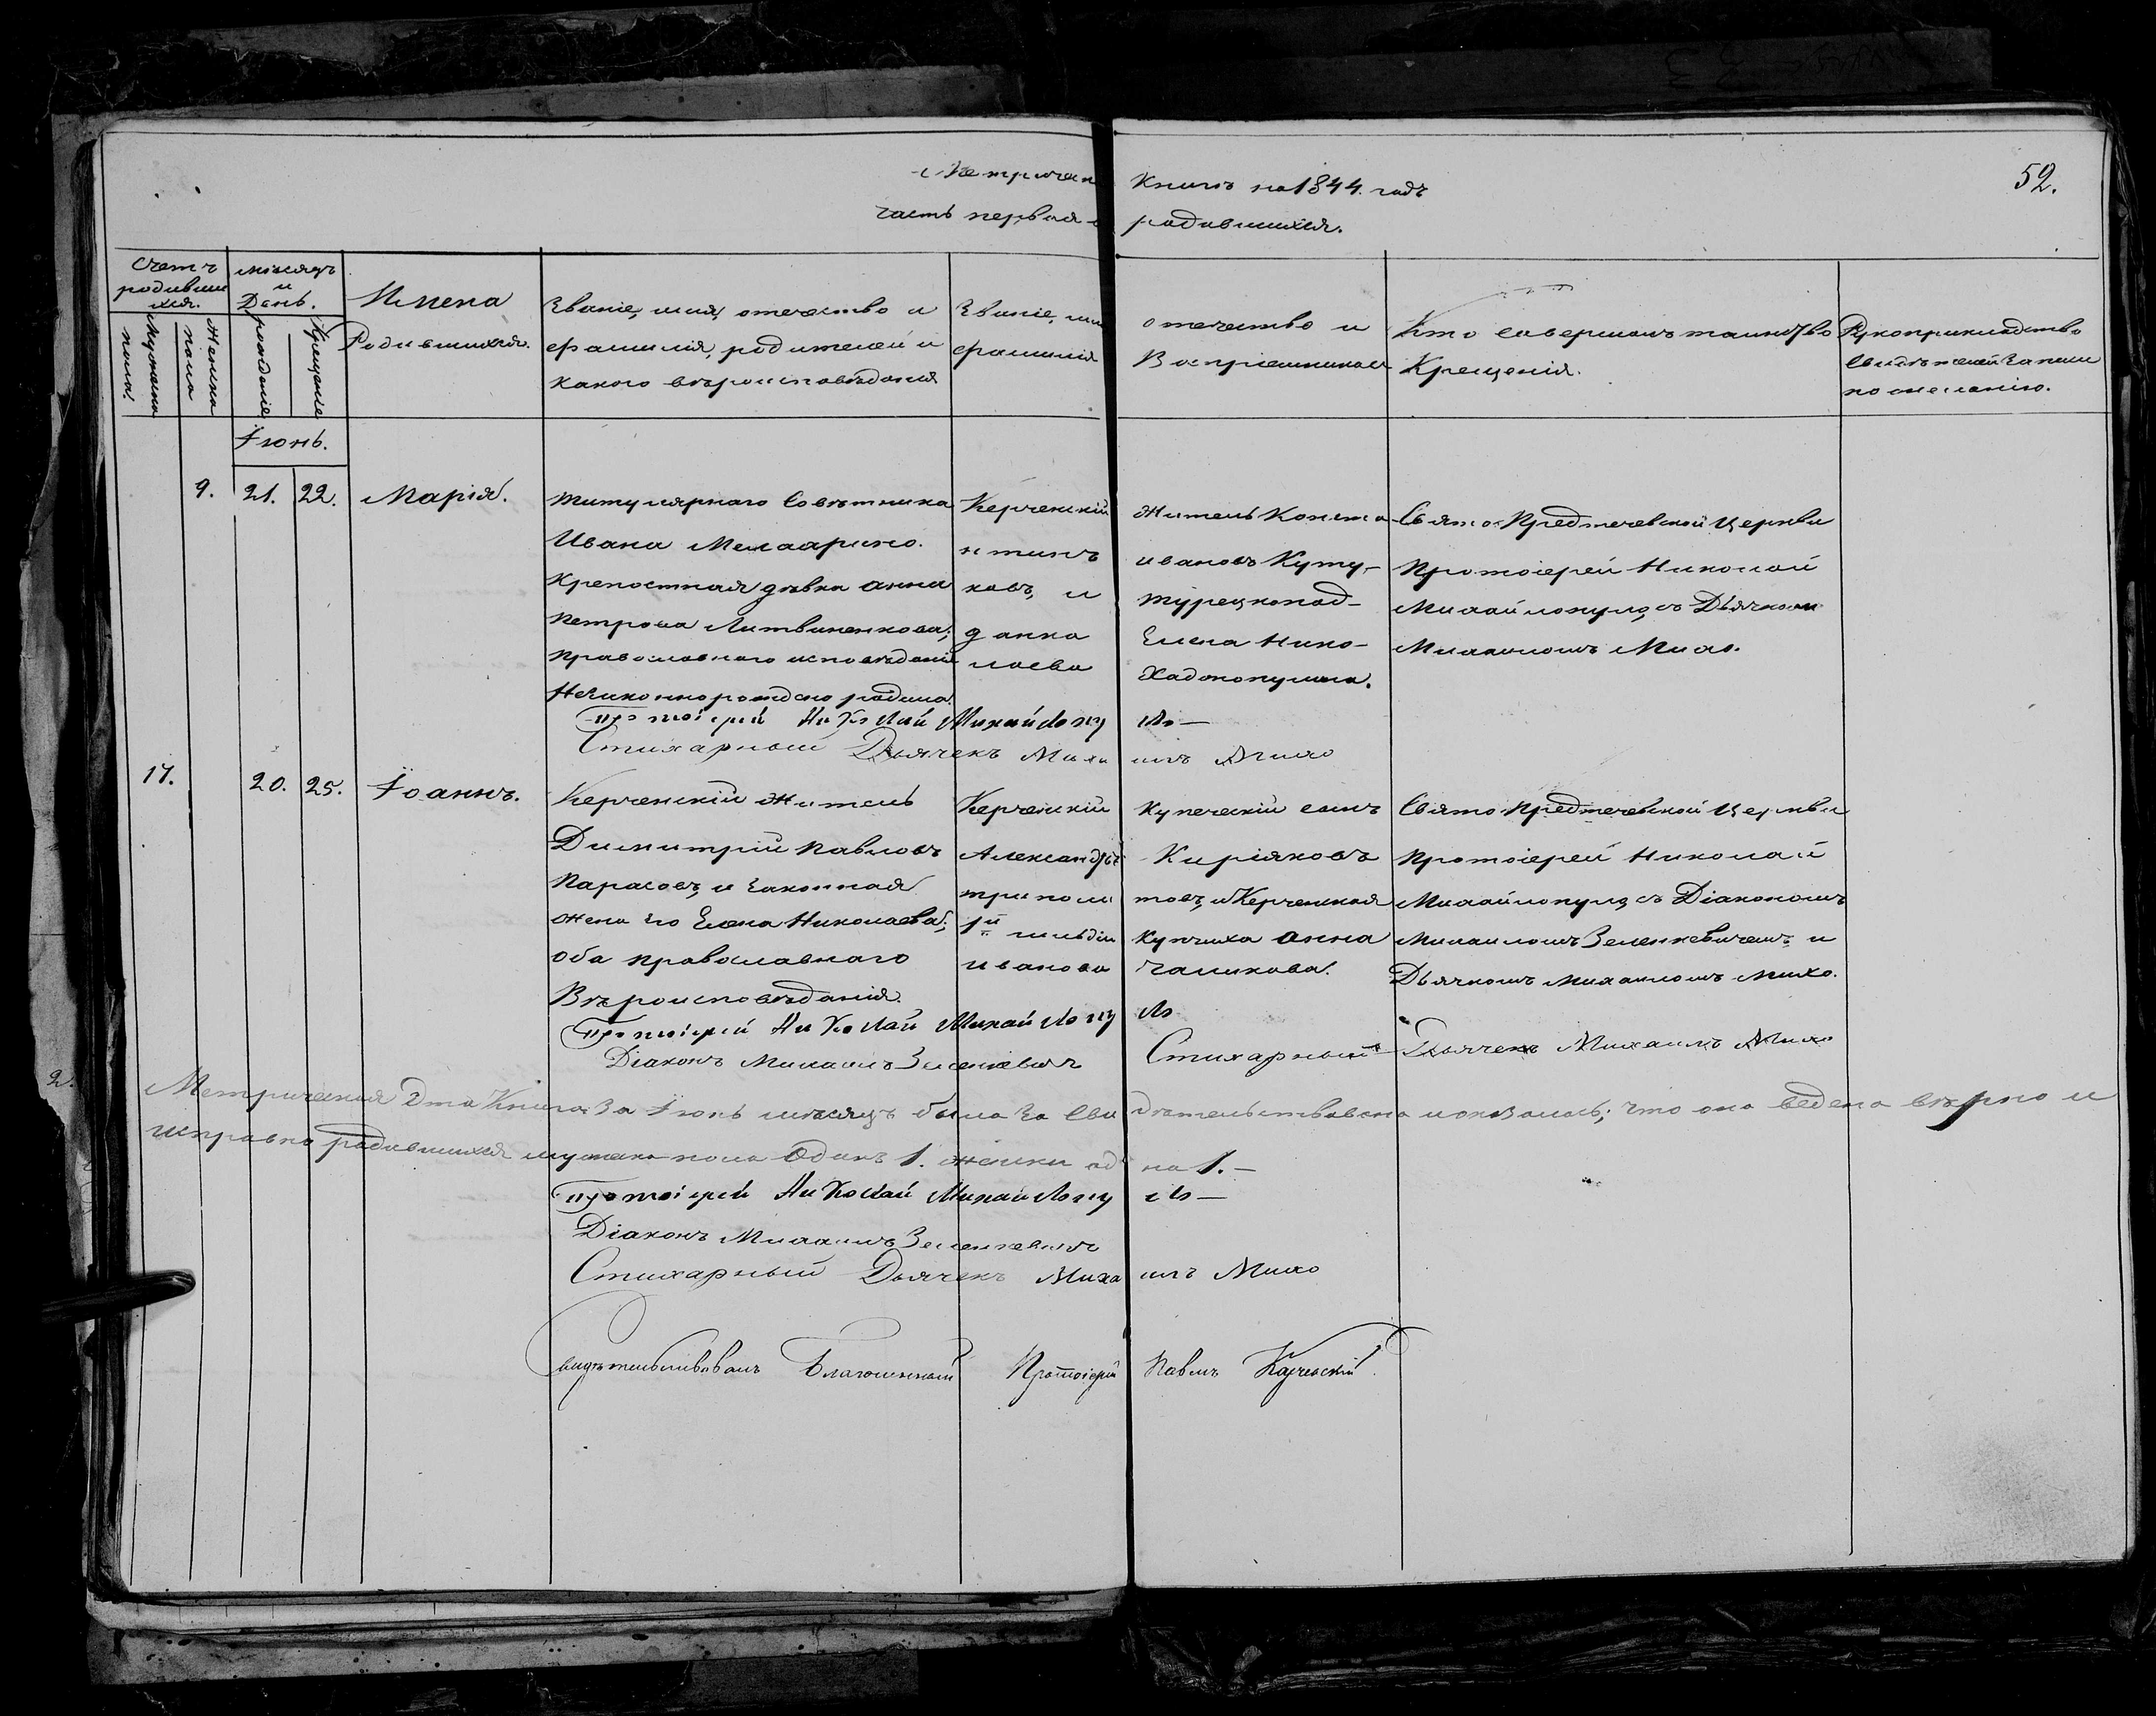 Метричес Книга на 1844. годъ
52.
часть первая о родившихся.
Счетъ родившихся.
Мужеска пола.
Женска пола
мѣсяцъ и День.
рожденіе
Крещеніе
Имена Родившихся.
Званіе, имя, отечество и
фамилія, родителей и
какого вѣроисповѣданія
Званіе, имя отечество и
фамилія Воспріемниковъ
Кто совершалъ таинство
Крещенія.
Рукоприкладство
свидѣтелей записи
по желанію.
Іюнь.
9. 21. 22. Марія.
титулярнаго Совѣтника
Ивана
крепостная дѣвка анна
петрова Литвиненкова,
православного исповѣданія
Незаконнорожденно родила.
Керченскій житель Конста
нтинъ ивановъ Куту-
ковъ, и турецкопод-
данна Елена Нико-
лаева Хадопопулина.
Свято-Предтечевской Церкви
Протоіерей Николай
Михайлопуло, съ Дьячкомъ
Михаиломъ Михо.
Протоіерей Николай Михайлопу ло—
Стихарный Дьячекъ Миха илъ Михо
17. 20. 25. Іоаннъ.
Керченскій житель
Димитрій павловъ
Парасовъ, и законная
жена его Елена Николаева;
оба православнаго
Вѣроисповѣданія.
Керченскій купеческій сынъ
Александръ Киріяковъ
триполи товъ, и Керченская
1й гильдіи купчиха анна
иванова
Свято Предтечевской Церкви
протоіерей Николай
Михайлопуло, съ Діакономъ
Михаиломъ Зеленкевичемъ и
Дьячкомъ Михаиломъ михо.
Протоіерей Николай Михайлопу ло
Діаконъ Михаилъ Зеленкевичъ Стихарный Дьячекъ Михаилъ Михо
2.
Метрическая Эта Книга За Іюнь мѣсяцъ была За сви дѣтельствована и оказалось; что она ведена вѣрно и
исправно родившихся мужеска пола Одинъ 1. женски од на 1.—
Протоіерей Николай Михайлопу ло—
Діаконъ Михаилъ Зеленкевичъ
Стихарный Дьячекъ Миха илъ Михо
Свидѣтельствовалъ Благочинный Протоіерей Павелъ